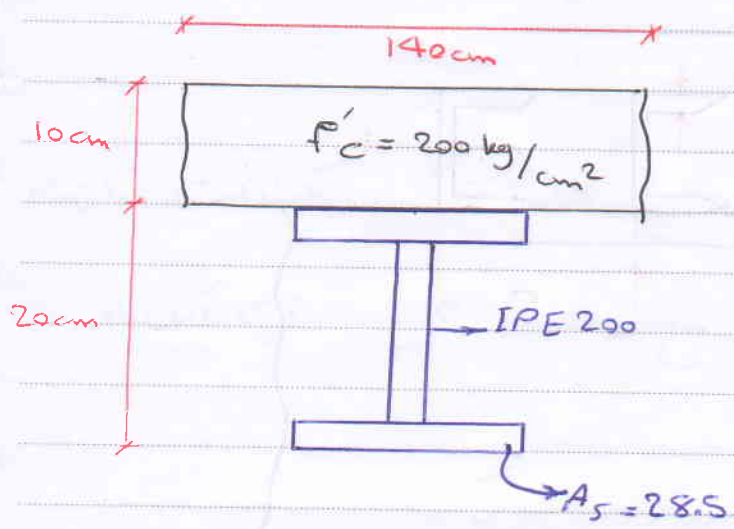 140cm
10cm
f'c = 200 kg/cm²
20cm
IPE 200
As = 28.5